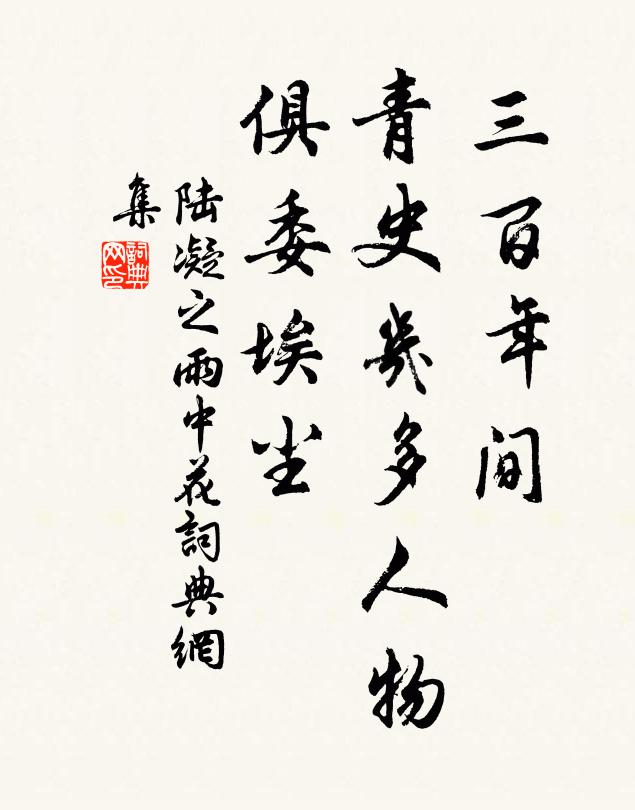 三百年间
青史幾多人物
俱委埃尘
陆凝之雨中花詞典網
集
詞典网印